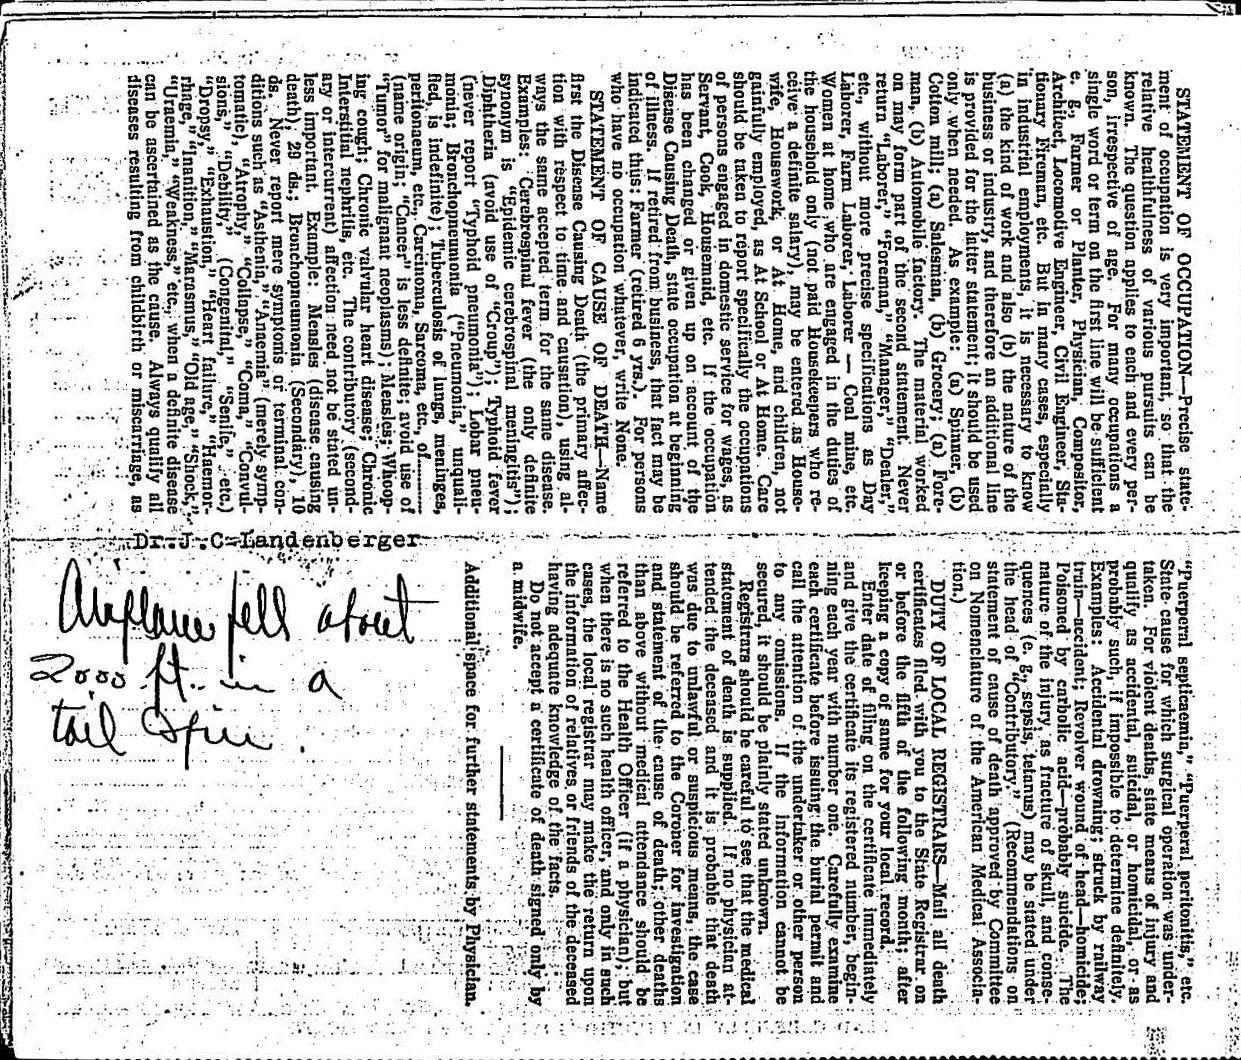 STATEMENT OF OCCUPATION—Precise state-
ment of occupation is very important, so that the
relative healthfulness of various pursuits can be
known. The question applies to each and every per-
son, irrespective of age. For many occupations a
single word or term on the first line will be sufficient
e. g., Farmer or Planter, Physician, Compositor,
Architect, Locomotive Engineer, Civil Engineer, Sta-
tionary Fireman, etc. But in many cases, especially
in industrial employments, it is necessary to know
(a) the kind of work and also (b) the nature of the
business or industry, and therefore an additional line
is provided for the latter statement; it should be used
only when needed. As example: (a) Spinner, (b)
Cotton mill; (a) Salesman, (b) Grocery; (a) Fore-
man, (b) Automobile factory. The material worked
on may form part of the second statement. Never
return "Laborer," "Foreman," "Manager," "Dealer,"
etc., without more precise specifications as Day
Laborer, Farm Laborer, Laborer — Coal mine, etc.
Women at home, who are engaged in the duties of
the household only (not paid Housekeepers who re-
ceive a definite salary), may be entered as House-
wife, Housework, or At Home, and children, not
gainfully employed, as At School or At Home. Care
should be taken to report specifically the occupations
of persons engaged in domestic service for wages, as
Servant, Cook, Housemaid, etc. If the occupation
has been changed or given up on account of the
Disease Causing Death, state occupation at beginning
of illness. If retired from business, that fact may be
indicated thus: Farmer (retired 6 yrs.). For persons
who have no occupation whatever, write None.
STATEMENT OF CAUSE OF DEATH—Name
first the Disease Causing Death (the primary affec-
tion with respect to time and causation), using al-
ways the same accepted term for the same disease.
Examples: Cerebrospinal fever (the only definite
synonym is "Epidemic cerebrospinal meningitis");
Diphtheria (avoid use of "Croup"); Typhoid fever
(never report "Typhoid pneumonia"); Lobar pneu-
monia; Bronchopneumonia ("Pneumonia," unquali-
fied, is indefinite); Tuberculosis of lungs, meninges,
peritonaeum, etc., Carcinoma, Sarcoma, etc., of
(name origin; "Cancer" is less definite; avoid use of
"Tumor" for malignant neoplasms); Measles; Whoop-
ing cough; Chronic valvular heart disease; Chronic
Interstitial nephritis, etc. The contributory (second-
ary or intercurrent) affection need not be stated un-
less important. Example: Measles (disease causing
death); 29 ds.; Bronchopneumonia (Secondary), 10
ds. Never report mere symptoms or terminal con-
ditions such as "Asthenia," "Anaemia" (merely symp-
tomatic), "Atrophy," "Collapse," "Coma," "Convul-
sions," "Debility," (Congenital," "Senile," etc.)
"Dropsy," "Exhaustion," "Heart failure," "Haemor-
rhage," "Inanition," "Marasmus," "Old age," "Shock,"
"Uraemia," "Weakness," etc., when a definite disease
can be ascertained as the cause. Always qualify all
diseases resulting from childbirth or miscarriage, as
"Puerperal septicaemia," "Puerperal peritonitis," etc.
State cause for which surgical operation was under-
taken. For violent deaths, state means of injury and
qualify as accidental, suicidal, or homicidal, or as
probably such, if impossible to determine definitely.
Examples: Accidental drowning; struck by railway
train—accident; Revolver wound of head—homicide;
Poisoned by carbolic acid—probably suicide. The
nature of the injury, as fracture of skull, and conse-
quences (e. g., sepsis, tetanus) may be stated under
the head of "Contributory." (Recommendations on
statement of cause of death approved by Committee
on Nomenclature of the American Medical Associa-
tion.)
DUTY OF LOCAL REGISTRARS—Mail all death
certificates filed with you to the State Registrar on
or before the fifth of the following month; after
keeping a copy of same for your local record.
Enter date of filing on the certificate immediately
and give the certificate its registered number, begin-
ning each year with number one. Carefully examine
each certificate before issuing the burial permit and
call the attention of the undertaker or other person
to any omissions. If the information cannot be
secured, it should be plainly stated unknown.
Registrars should be careful to see that the medical
statement of death is supplied. If no physician at-
tended the deceased and it is probable that death
was due to unlawful or suspicious means, the case
should be referred to the Coroner for investigation
and statement of the cause of death; other deaths
than above without medical attendance should be
referred to the Health Officer (if a physician); but
when there is no such health officer, and only in such
cases, the local registrar may make the return upon
the information of relatives or friends of the deceased
having adequate knowledge of the facts.
Do not accept a certificate of death signed only by
a midwife.
Additional space for further statements by Physician.
Dr. J. C. Landenberger
Airplane fell about
2000 ft. in a
tail spin.